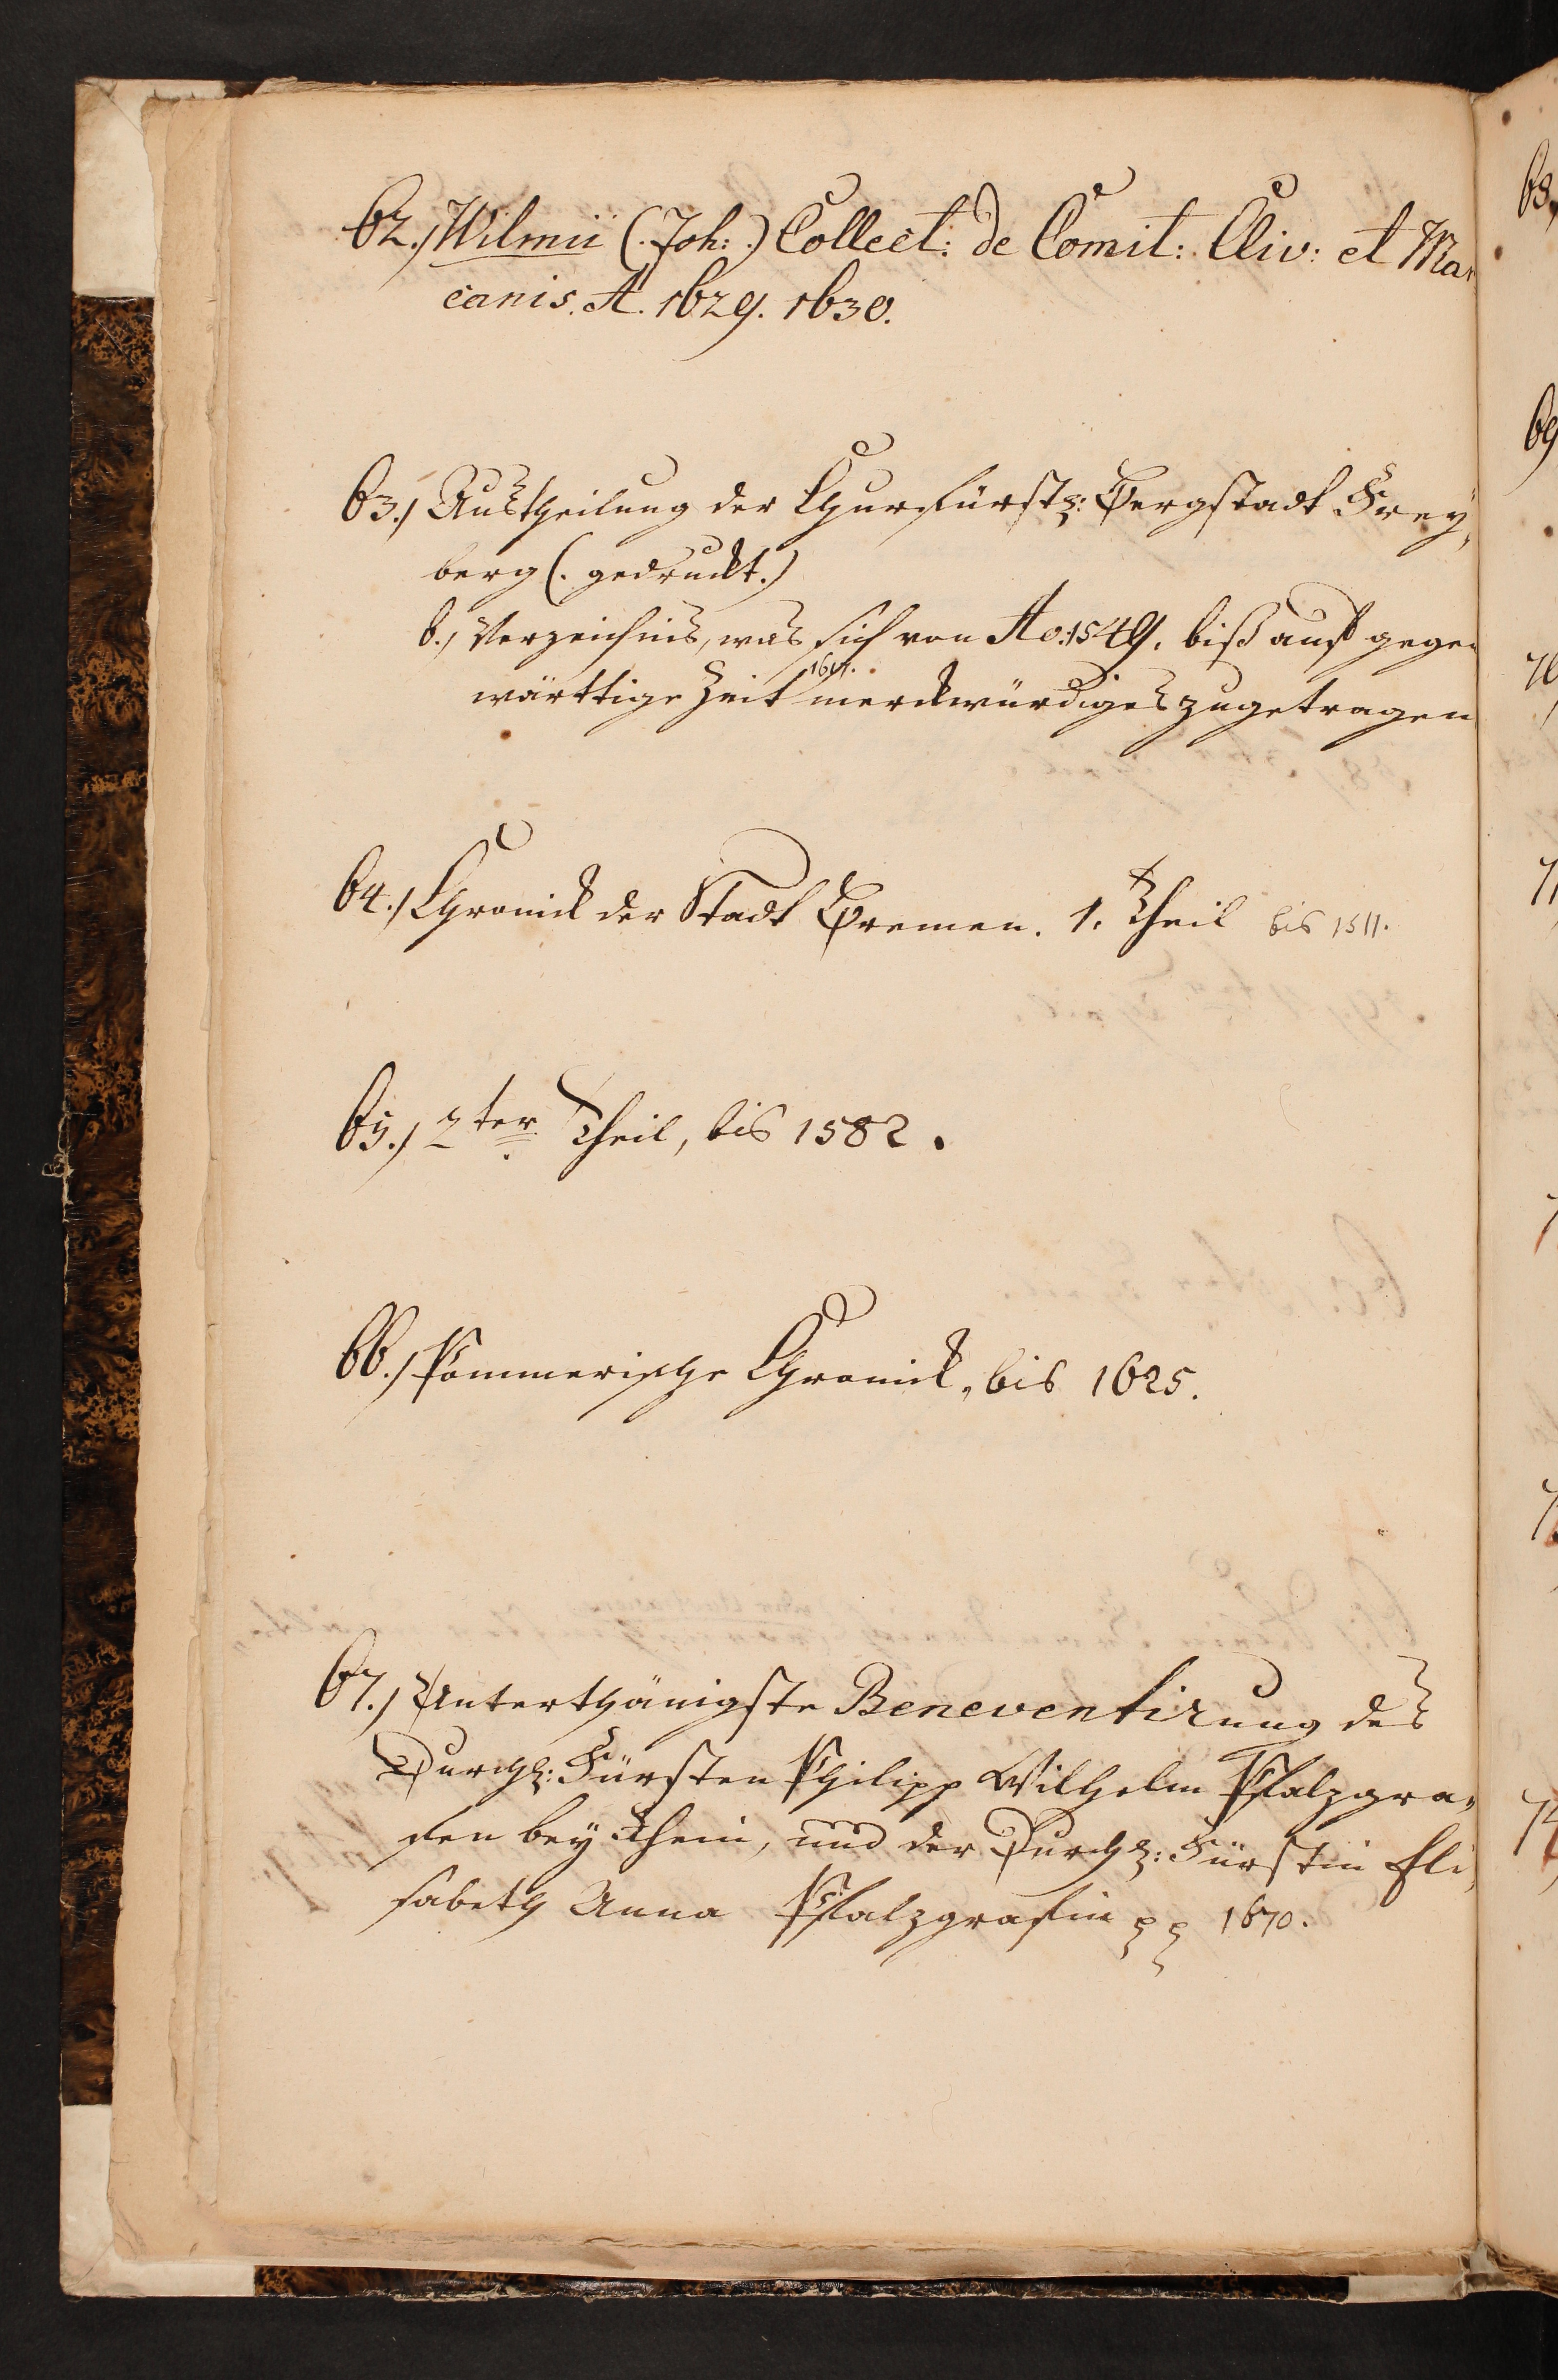 62.) Wilmii (. Joh: .) Collect: de Comit: Cliv: et Mar
canis. A. 1629. 1630.
63.) Austheilung der Churfürstl: Bergstadt Frey,
berg (. gedruckt.)
b.) Verzeichnis, was sich von Ao: 1549. biß auf gegen
wärttige Zeit merckwürdiges zugetragen
64.) Chronick der Stadt Bremen. 1. Theil bis 1511.
65.) 2ter Theil, bis 1582.
66.) Pommerische Chronick, bis 1625.
67.) Unterthänigste Beneventirung des
Durchl: Fürsten Philipp Wilhelm Pfalzgra„
fen bey Rhein, und der Durchl: Fürstin Eli,
sabeth Anna Pfalzgrafin pp 1670.
68,
69
70
71